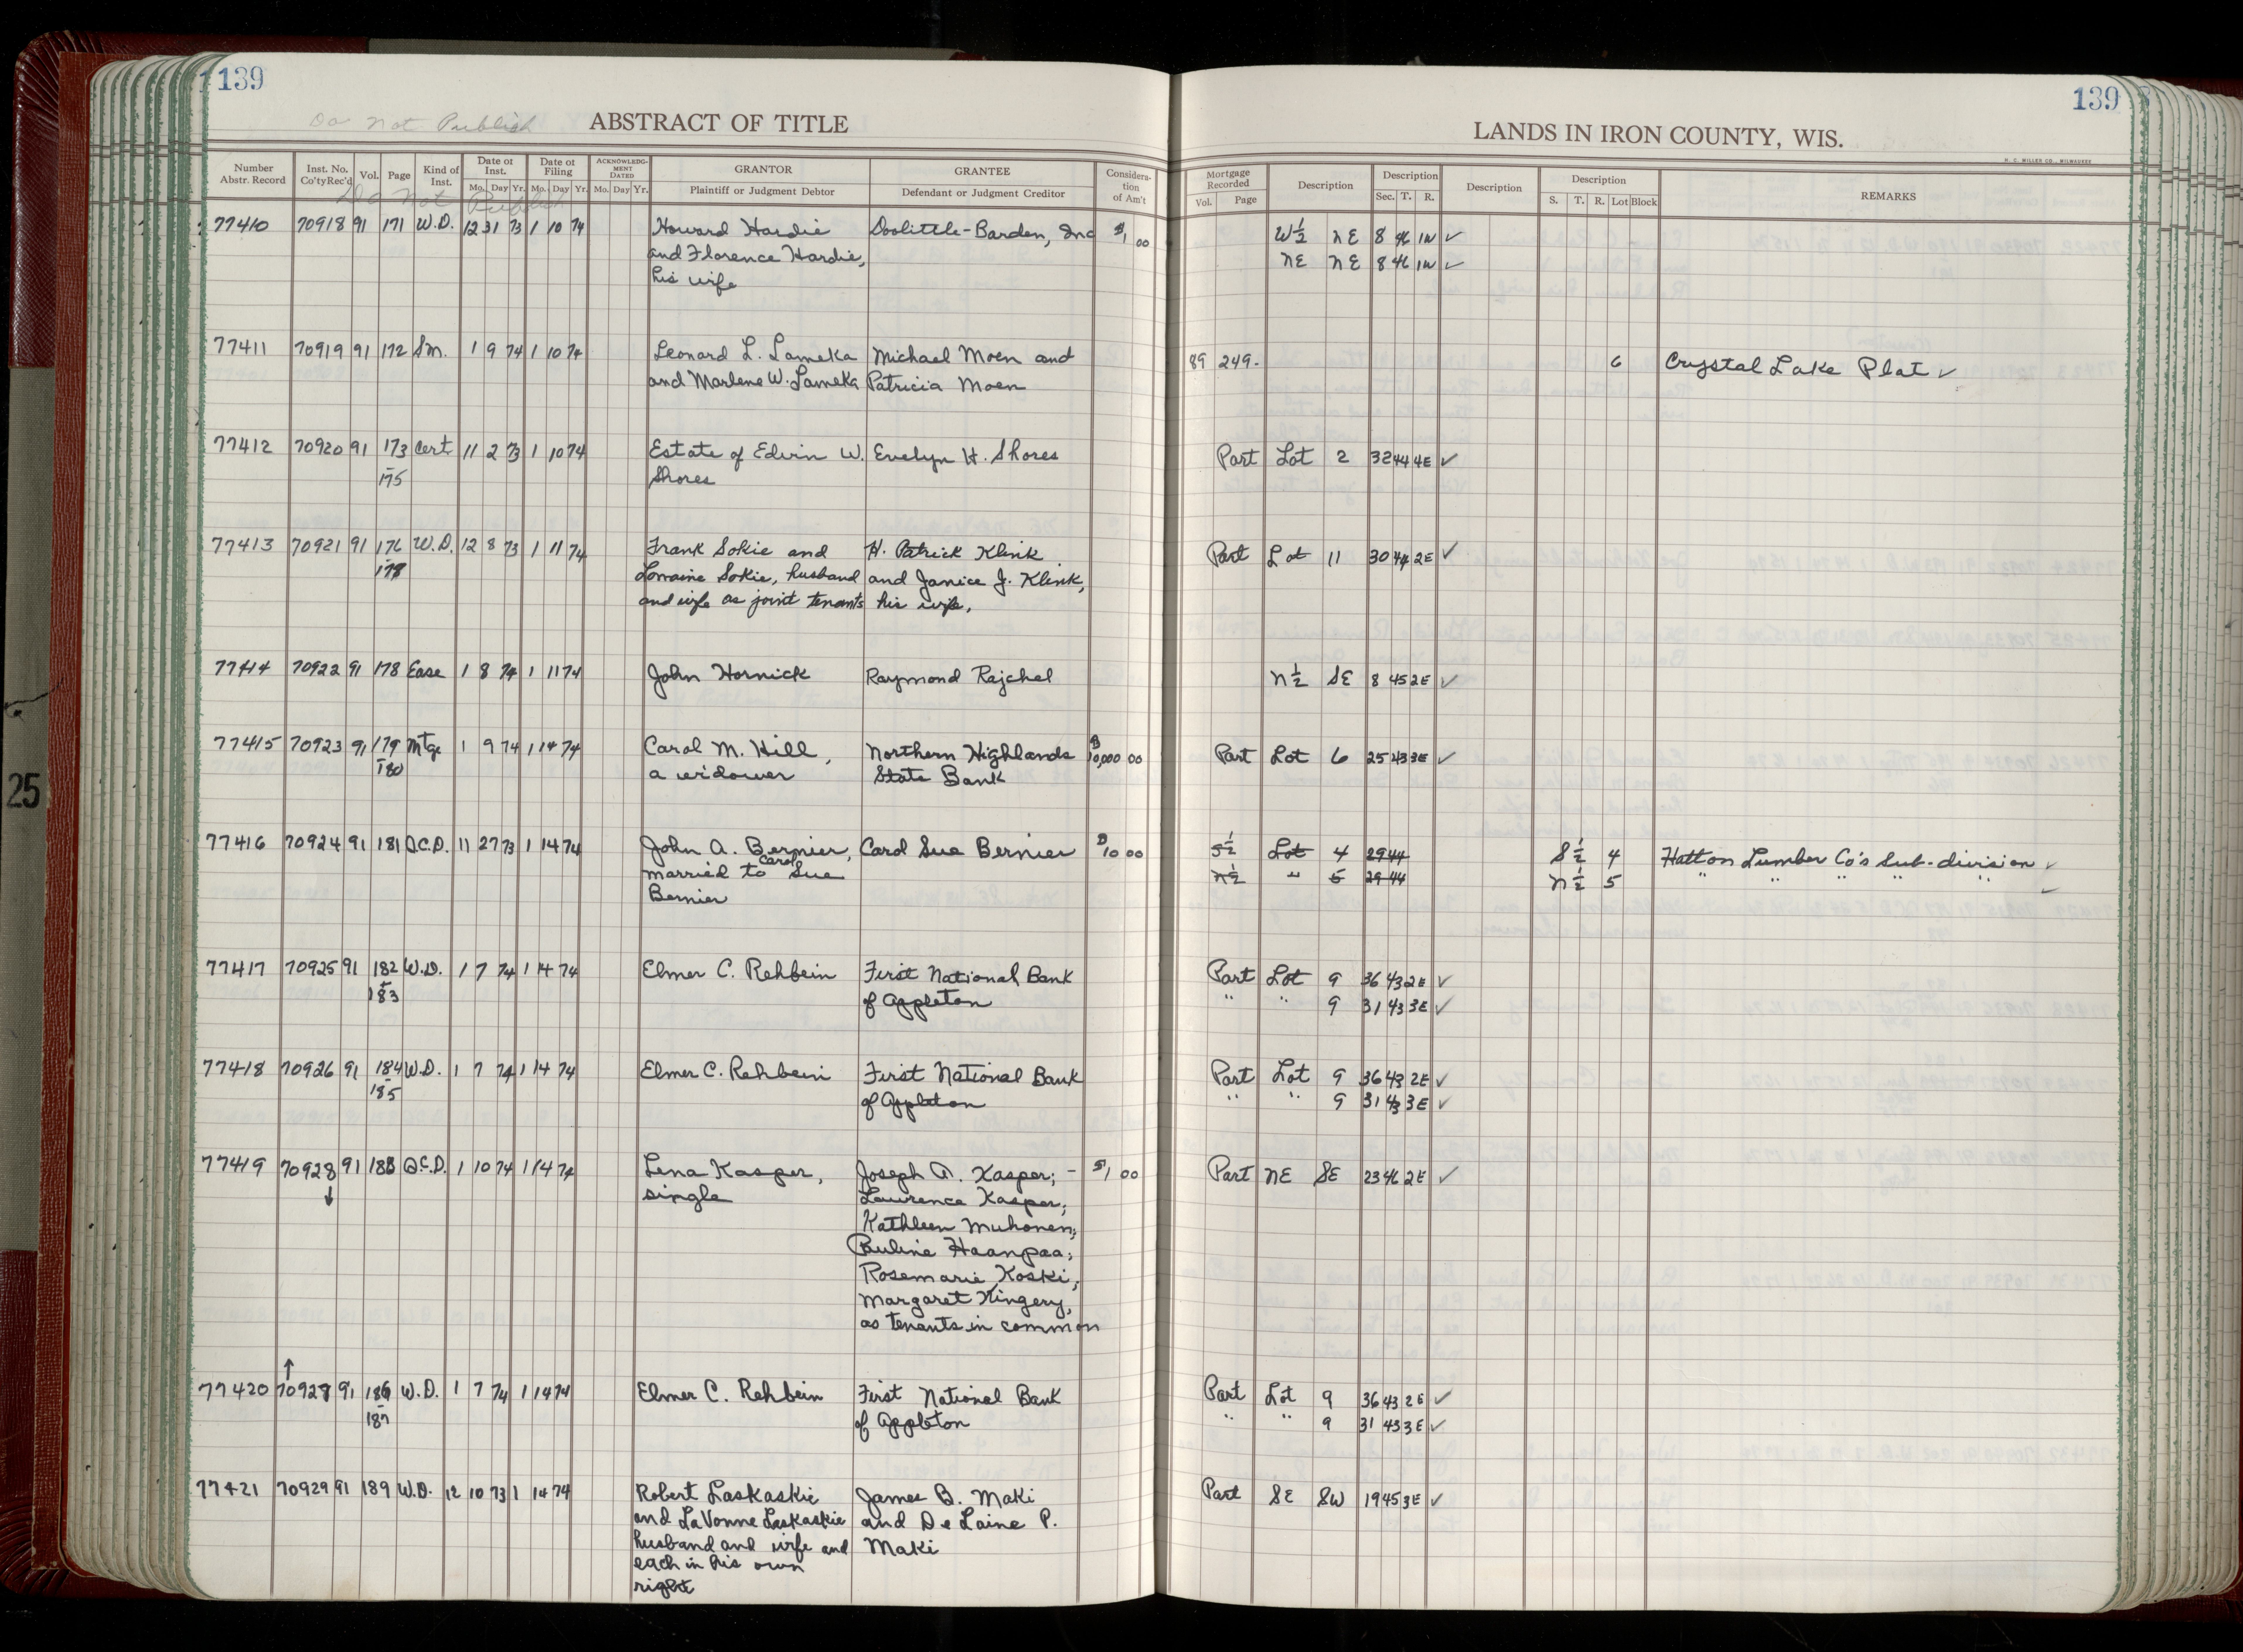 139
139
Do Not Publish
ABSTRACT OF TITLE
LANDS IN IRON COUNTY, WIS.
H. C. MILLER CO., MILWAUKEE
Number Abstr. Record Inst. No. Co'ty Rec'd Vol. Page Kind of Inst. Date of Inst. Mo. Day Yr. Date of Filing Mo. Day Yr. ACKNOWLEDGMENT DATED Mo. Day Yr. GRANTOR Plaintiff or Judgment Debtor GRANTEE Defendant or Judgment Creditor Consideration of Am't Mortgage Recorded Vol. Page Description Description Sec. T. R. Description Description S. T. R. Lot Block REMARKS
Do Not Publish
77410 70918 91 171 W.D. 12 31 73 1 10 74 Howard Hardie Doolittle-Barden, Inc $1 00 W½ NE 8 46 1W ✓
and Florence Hardie, NE NE 8 46 1W ✓
his wife
77411 70919 91 172 Sm. 1 9 74 1 10 74 Leonard L. Lameka Michael Moen and 89 249. 6 Crystal Lake Plat ✓
and Marlene W. Lameka Patricia Moen
77412 70920 91 173 Cert 11 2 73 1 10 74 Estate of Edwin W. Evelyn H. Shores Part Lot 2 32 44 4E ✓
-175 Shores
77413 70921 91 176 W.D. 12 8 73 1 11 74 Frank Sokie and H. Patrick Klink Part Lot 11 30 44 2E ✓
Lorraine Sokie, husband and Janice J. Klink,
and wife as joint tenants his wife.
77414 70922 91 178 Ease 1 8 74 1 11 74 John Hornick Raymond Rajchel N½ SE 8 45 2E ✓
77415 70923 91 179 Mtge 1 9 74 1 14 74 Carol M. Hill, Northern Highlands $10,000 00 Part Lot 6 25 43 3E ✓
-180 a widower State Bank
77416 70924 91 181 Q.C.D. 11 27 73 1 14 74 John A. Bernier, Carol Sue Bernier $10 00 S½ Lot 4 29 44 S½ 4 Hatton Lumber Co's Sub-division ✓
married to Carol Sue N½ " 5 29 44 N½ 5 " " " " ✓
Bernier
77417 70925 91 182 W.D. 1 7 74 1 14 74 Elmer C. Rehbein First National Bank Part Lot 9 36 43 2E ✓
-183 of Appleton " " 9 31 43 3E ✓
77418 70926 91 184 W.D. 1 7 74 1 14 74 Elmer C. Rehbein First National Bank Part Lot 9 36 43 2E ✓
-185 of Appleton " " 9 31 43 3E ✓
77419 70928 91 188 Q.C.D. 1 10 74 1 14 74 Lena Kasper, Joseph A. Kasper; - $1 00 Part NE SE 23 46 2E ✓
↓ single Lawrence Kasper;
Kathleen Muhonen;
Pauline Haanpaa;
Rosemarie Koski;
Margaret Kingery,
as tenants in common
↑
77420 70927 91 186 W.D. 1 7 74 1 14 74 Elmer C. Rehbein First National Bank Part Lot 9 36 43 2E ✓
-187 of Appleton " " 9 31 43 3E ✓
77421 70929 91 189 W.D. 12 10 73 1 14 74 Robert Laskaskie James B. Maki Part SE SW 19 45 3E ✓
and LaVonne Laskaskie and DeLaine P.
husband and wife and Maki
each in his own
right
25